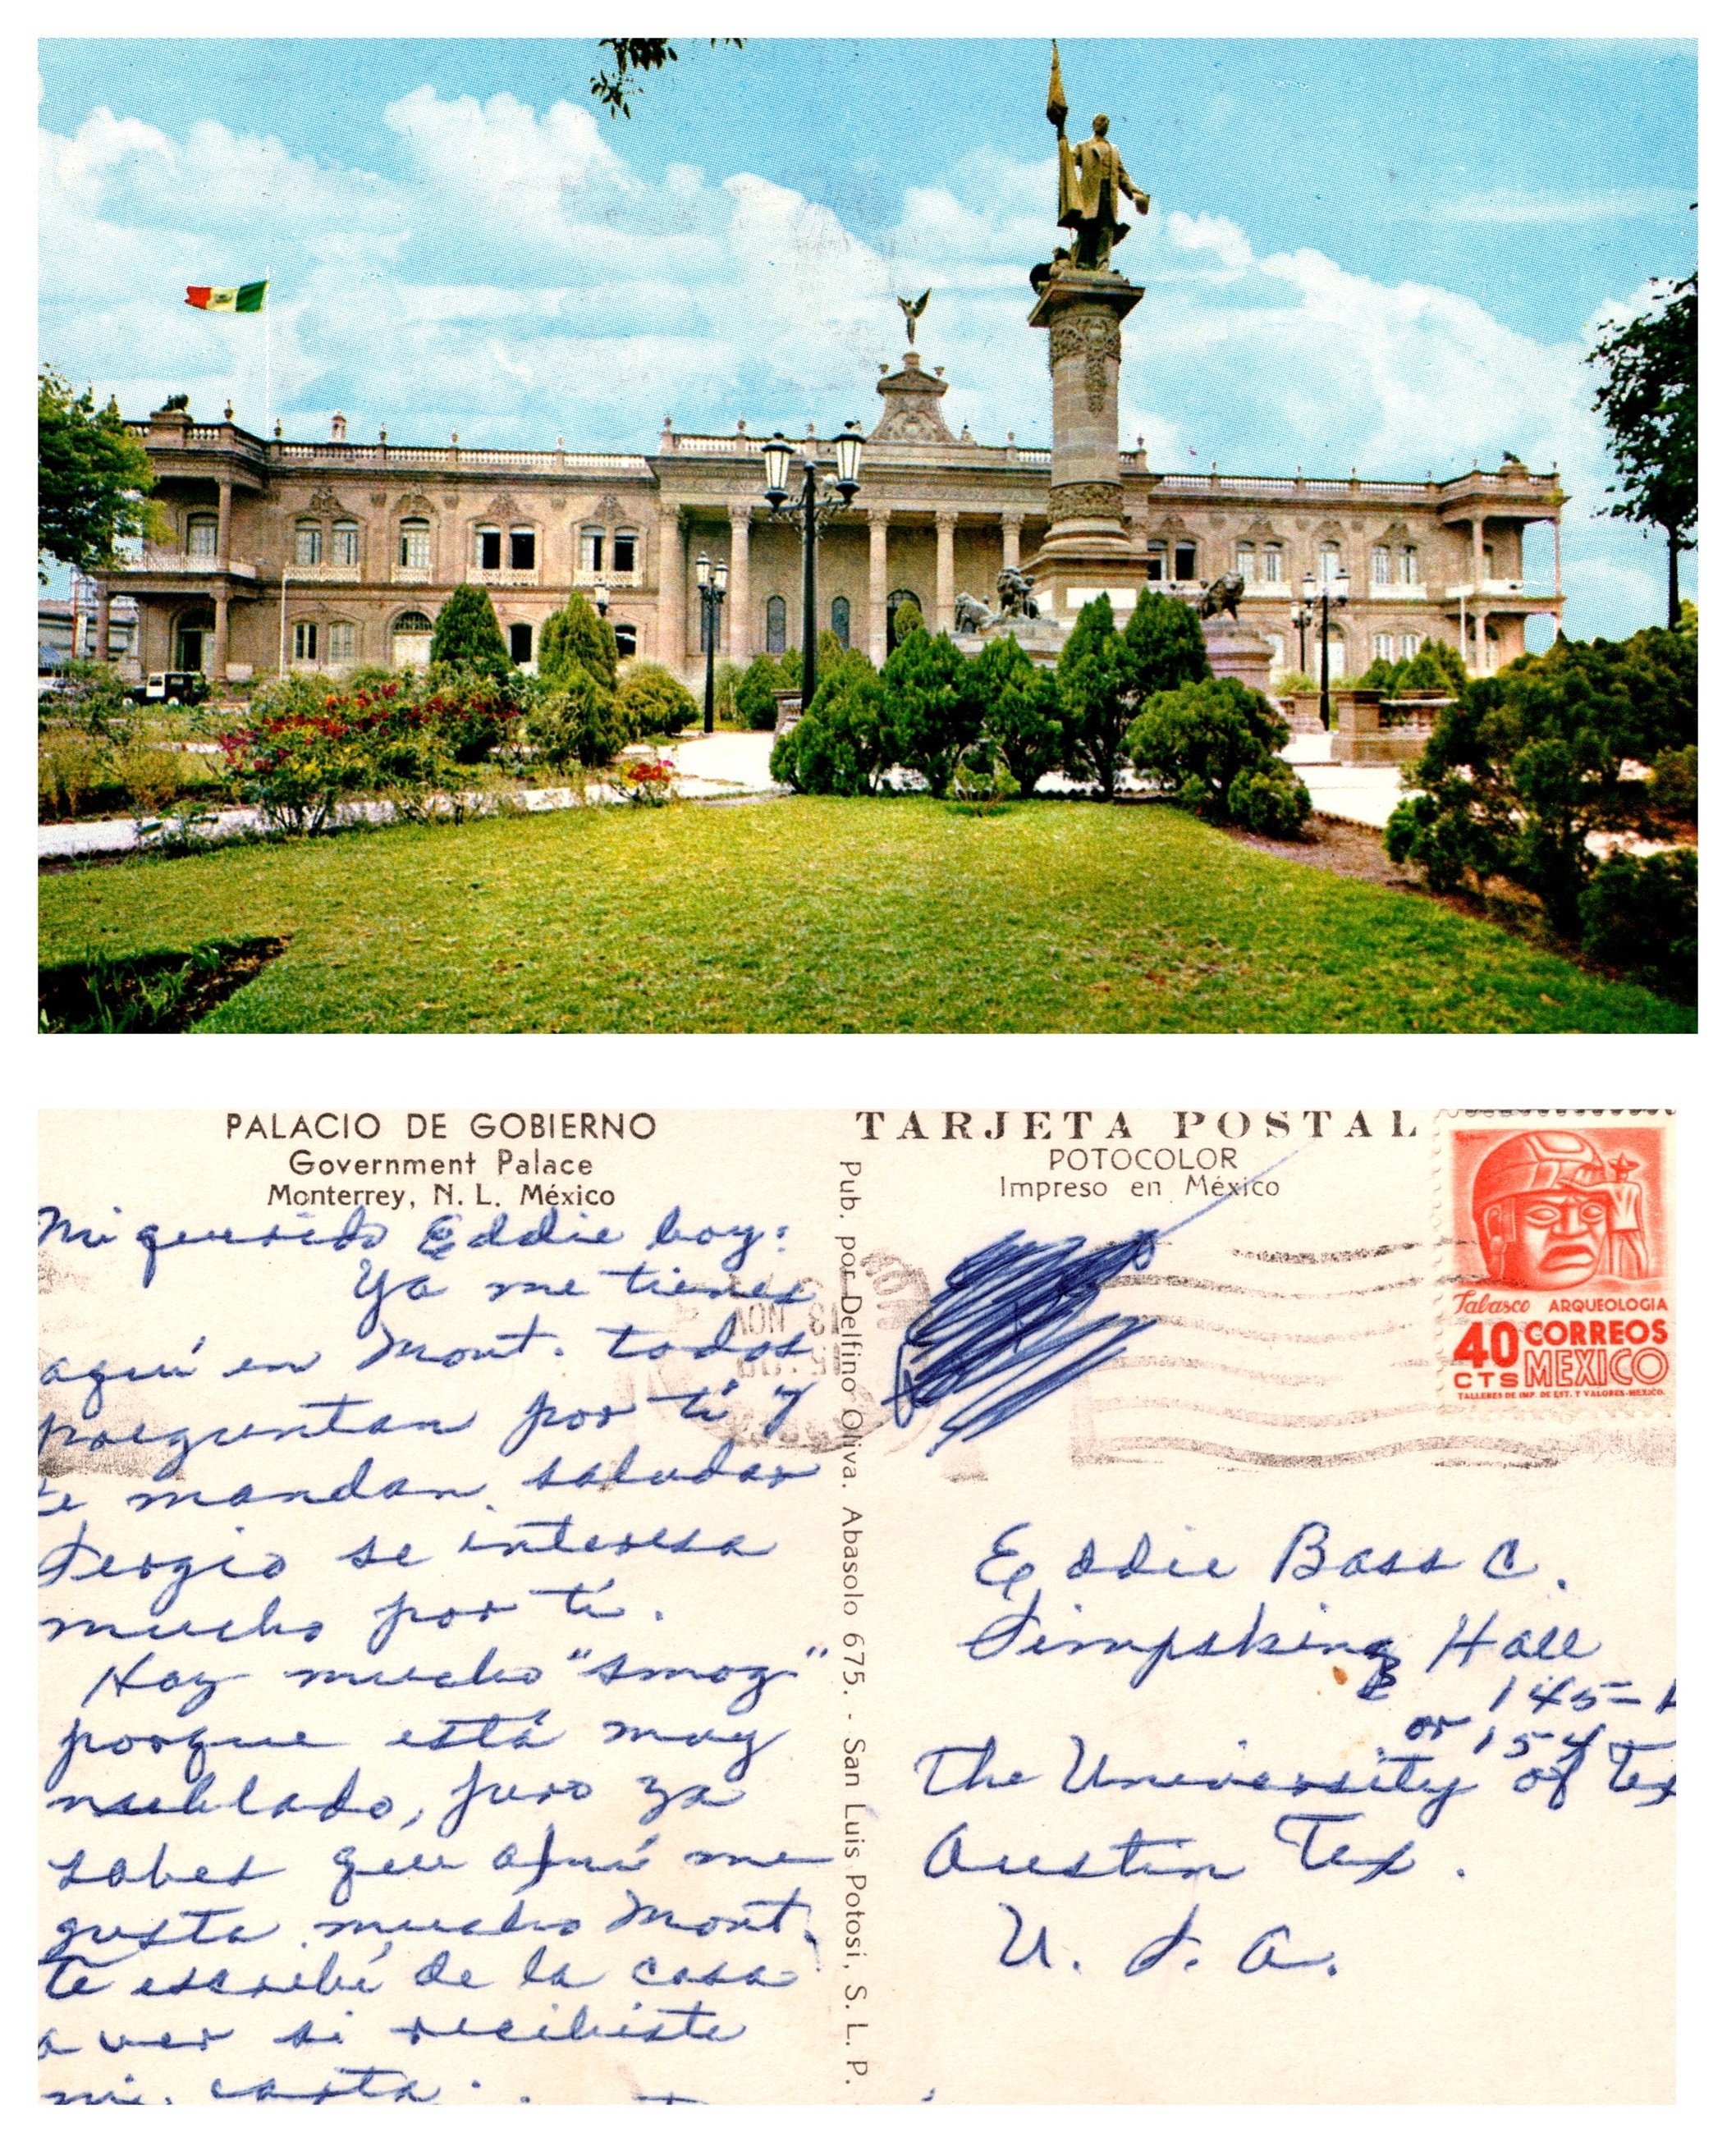 PALACIO DE GOBIERNO
Government Palace
Monterrey, N. L. México
Mi querido Eddie boy:
Ya me tienes
aquí en Mont. todos
preguntan por tí y
te mandan saludar
Sergio se interesa
mucho por tí.
Hay mucho "smog"
porque está muy
nublado, pero ya
sabes que aquí me
gusta mucho Mont.
te escribí de la casa
a ver si recibiste
mi carta.
Pub. por Delfino Oliva. Abasolo 675. - San Luis Potosi, S. L. P.
TARJETA POSTAL
POTOCOLOR
Impreso en México
13 NOV
Tabasco ARQUEOLOGIA
40 CORREOS
CTS MEXICO
TALLERES DE IMP. DE EST. Y VALORES-MEXICO.
Eddie Bass C.
Hall
145-
or 154
The University of Tex
Austin Tex.
U. S. A.